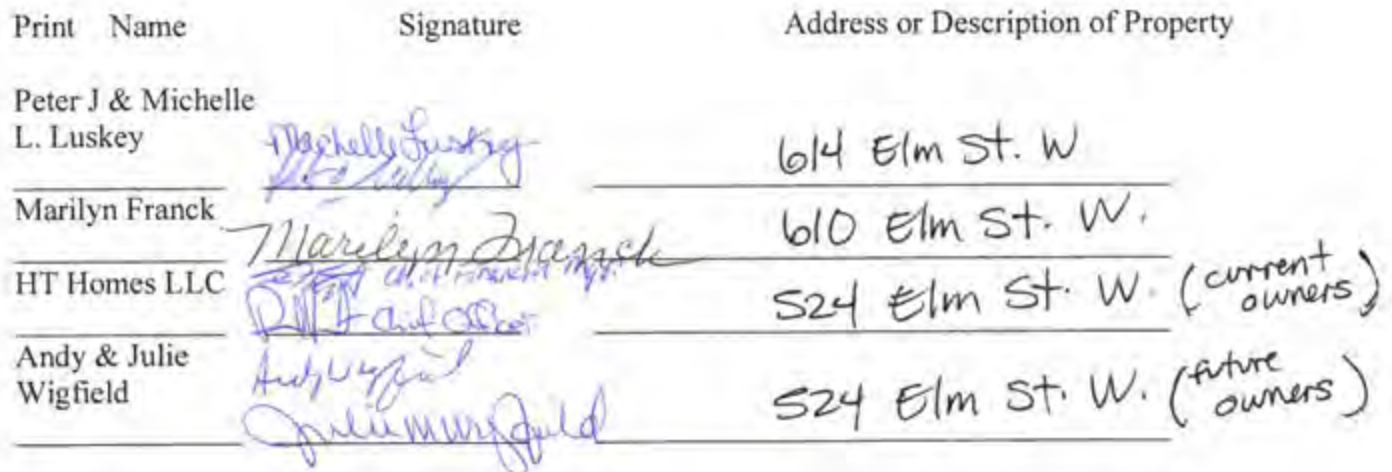 Print Name Signature Address or Description of Property
Peter J & Michelle
L. Luskey Michelle Luskey 614 Elm St. W
Marilyn Franck Marilyn Franck 610 Elm St. W.
Chief Financial Mgr.
HT Homes LLC Chief Officer 524 Elm St. W. (current owners)
Andy & Julie
Wigfield Andy Wigfield 524 Elm St. W. (future owners)
Julie M Wigfield